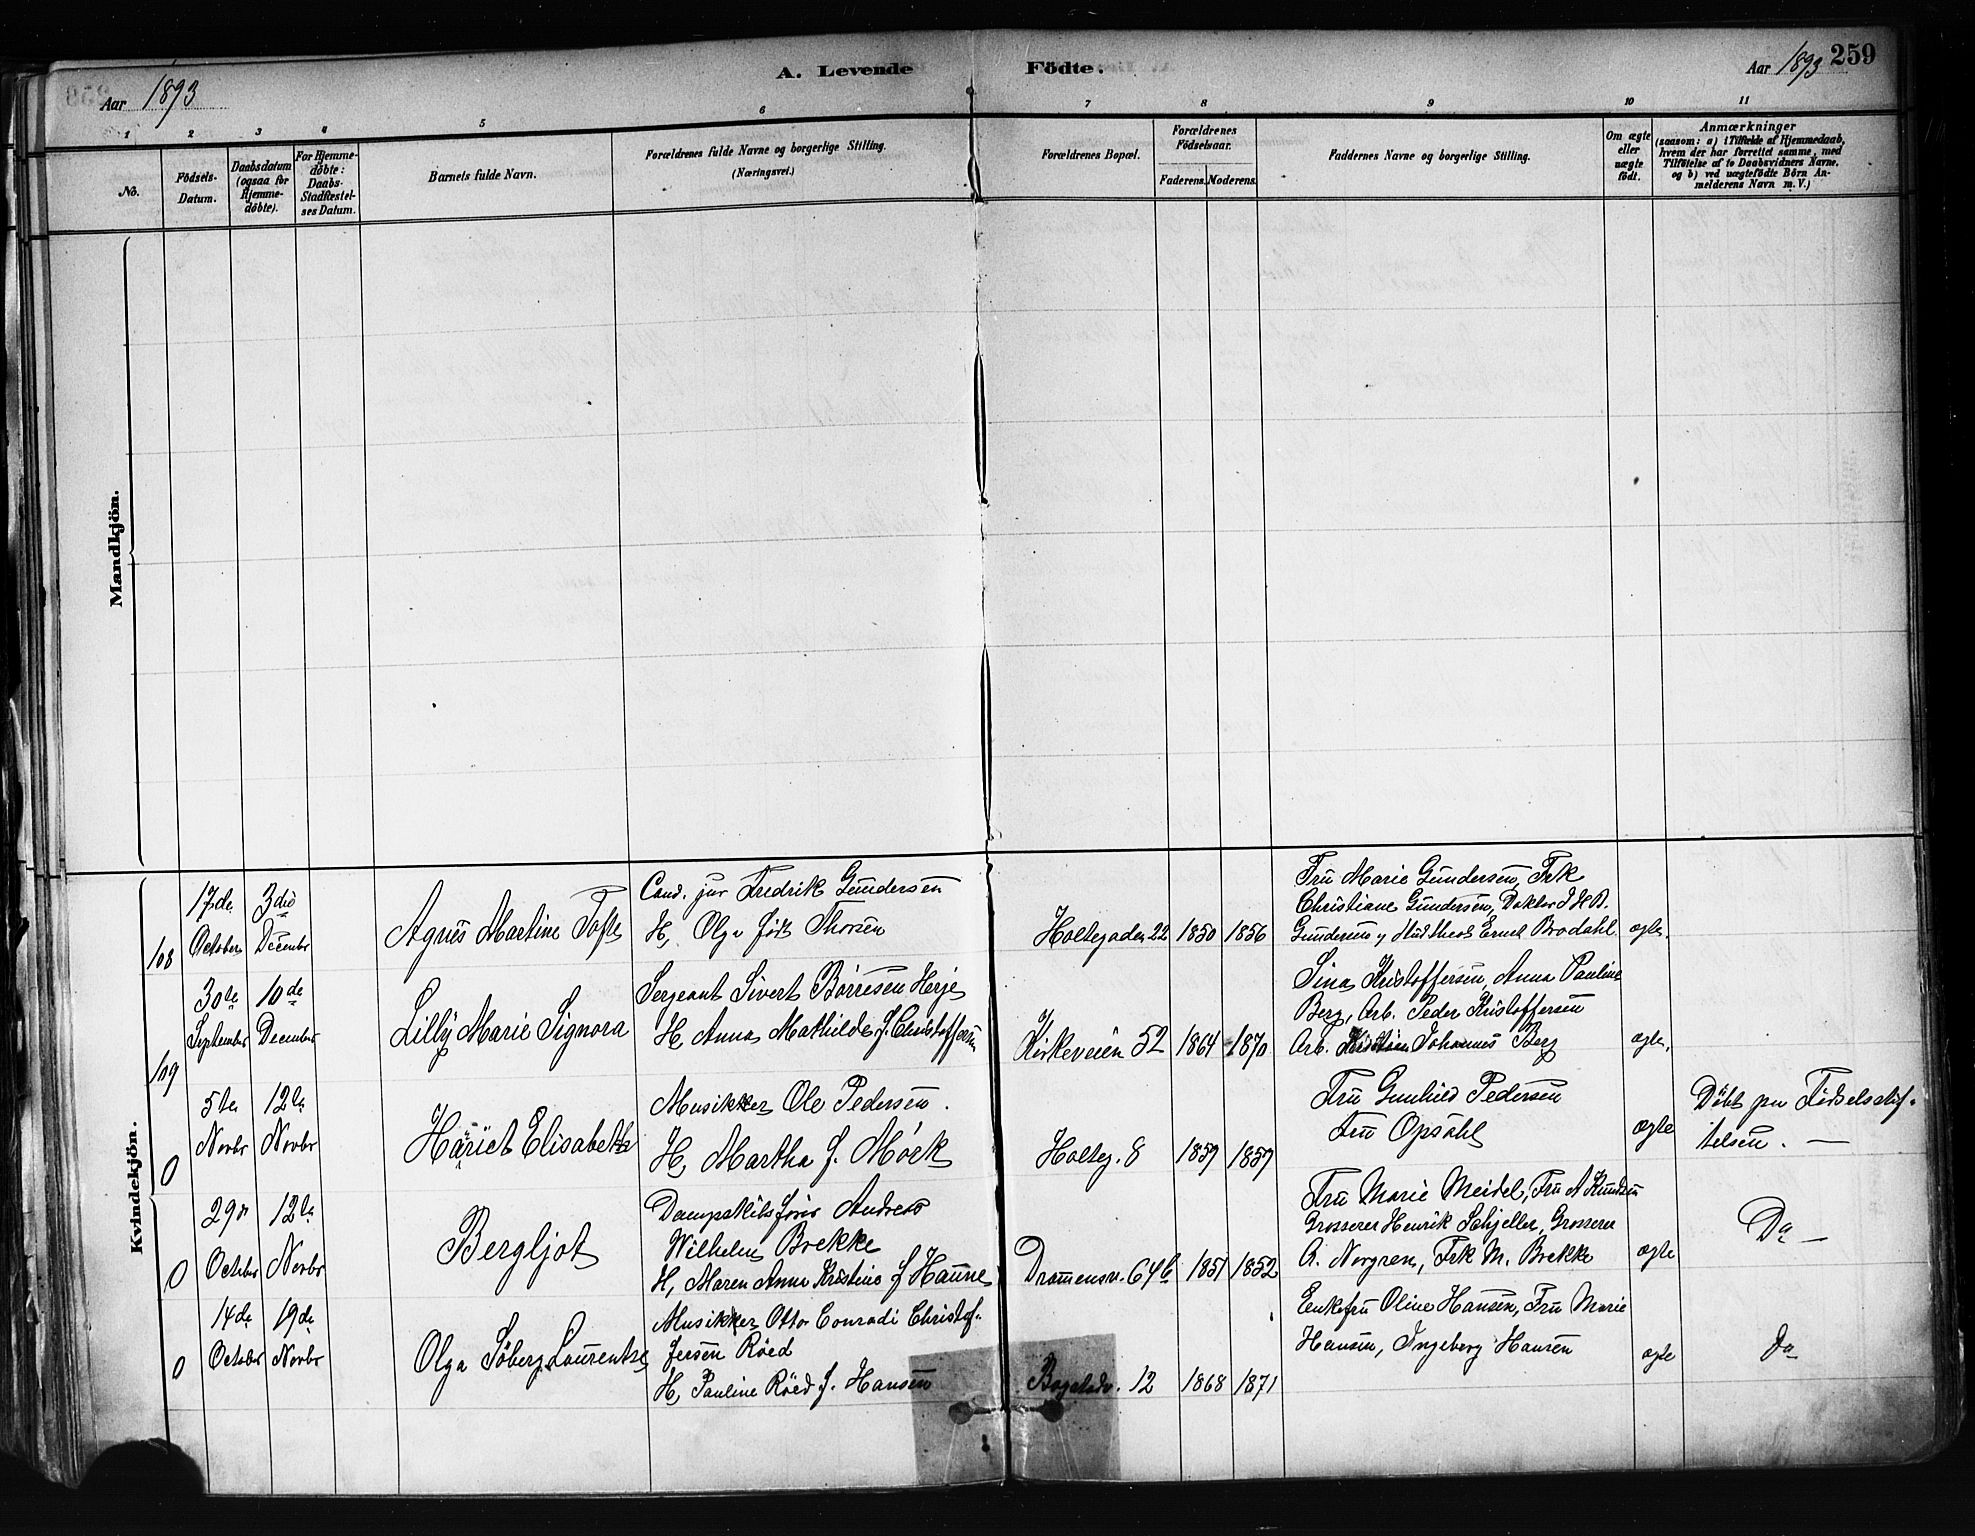 259
Aar 1893
A. Levende Födte.
Aar 1893
1 2 3 4 5 6 7 8 9 10 11
No.
Födsels-
Datum.
Daabsdatum
(ogsaa for
Hjemme-
döbte).
For Hjemme-
döbte:
Daabs-
Stadfæstel-
ses Datum.
Barnets fulde Navn.
Forældrenes fulde Navne og borgerlige Stilling.
(Næringsvei.)
Forældrenes Bopæl.
Forældrenes
Födselsaar.
Faderens. Moderens.
Faddernes Navne og borgerlige Stilling.
Om ægte
eller
uægte
födt.
Anmærkninger
(saasom: a) i Tilfælde af Hjemmedaab,
hvem der har forrettet samme, med
Tilföielse af to Daabsvidners Navne,
og b) ved uægtefödte Börn An-
melderens Navn m. V.)
Mandkjön.
Kvindekjön.
108
17de
October
3die
Decembr
Agnes Martine Tofte
Cand. jur Fredrik Gundersen
H, Olga født Thorsen
Holtegaden 22
1850 1856
Fru Marie Gundersen, Frk
Christiane Gundersen, Doktor I H B.
Gundersen, Ernst Brodahl
ægte.
109
30te
September
10de
December
Lilly Marie Signora
Sergeant Sivert Børresen Herje
H, Anna Mathilde f. Christoffersen
Kirkeveien 52
1864 1870
Sina Kristoffersen, Anna Pauline
Berg, Arb. Peder Kristoffersen
Arb. Johannes Berg
ægte.
0
5te
Novbr
12te
Novbr
Hariet Elisabeth
Musikker Ole Pedersen.
H, Martha f. Mörk
Holteg. 8
1859 1859
Fru Gunhild Pedersen
Fru Opsahl
ægte
Döbt paa Fødselsstif-
telsen. —
0
29de
October
12te
Novbr
Bergljot
Dampskibsfører Andreas
Wilhelm Brekke
H, Maren Anna Kristine f Haune
Dramensv. 64b
1851 1852
Fru Marie Meidel, Fru A Knudsen
Grosserer Henrik Schjeller, Grosserer
A. Norgren, Frk M. Brekke
ægte
Do —
0
14de
October
19de
Novbr
Olga Söberg Laurentze
Musikker Otto Conradi Christof-
fersen Röed
H, Pauline Röed f. Hansen
Bogstadv. 12
1868 1871
Enkefru Oline Hansen, Fru Marie
Hansen, Ingeborg Hansen
ægte
Do